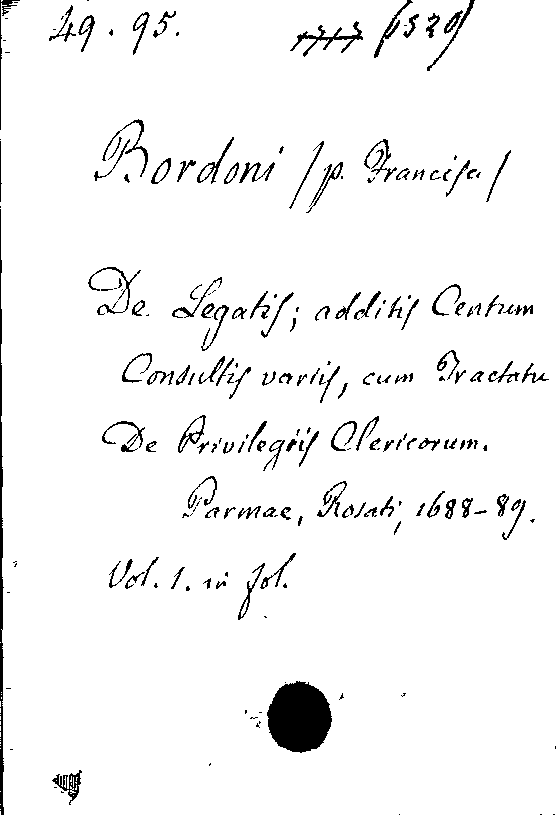 49. 95. 1717 (1320)
Bordoni /p. Francisci/
De Legatis; additis Centum
Consultis variis, cum Tractatu
De Privilegiis Clericorum.
Parmae, Rosati, 1688-89.
Vol. 1. in fol.